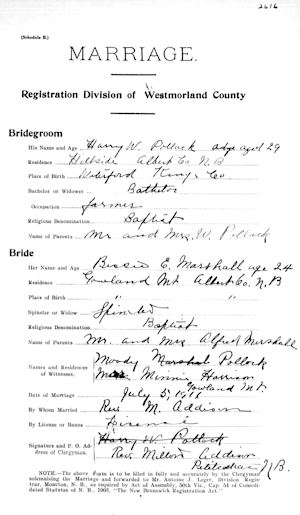 2616
(Schedule B.)
MARRIAGE.
Registration Division of Westmorland County
Bridegroom
His Name and Age Harry W. Pollock aged 29
Residence Hillside Albert Co. N.B
Place of Birth Waterford Kings Co
Bachelor or Widower Batchelor
Occupation farmer
Religious Denomination Baptist
Name of Parents Mr and Mrs W. Pollock
Bride
Her Name and Age Bessie E. Marshall age 24
Residence Gowland Mt Albert Co. N.B
Place of Birth " "
Spinster or Widow Spinster
Religious Denomination Baptist
Name of Parents Mr. and Mrs Alfred Marshall
Names and Residences of Witnesses. Moody Marshal Pollock
Minnie Harrison
Gowland Mt.
Date of Marriage July 5, 1911
By Whom Married Rev M. Addison
By License or Banns License
Signature and P. O. Address of Clergyman. Harry W. Pollock
Rev. Milton Addison
Petitcodiac N.B.
NOTE.—The above Form is to be filled in fully and accurately by the Clergyman
solemnizing the Marriage and forwarded to Mr. Antoine J. Leger, Division Registrar,
Moncton, N. B., as required by Act of Assembly, 50th Vic., Cap. 5 of Consolidated
Statutes of N. B., 1903, "The New Brunswick Registration Act."